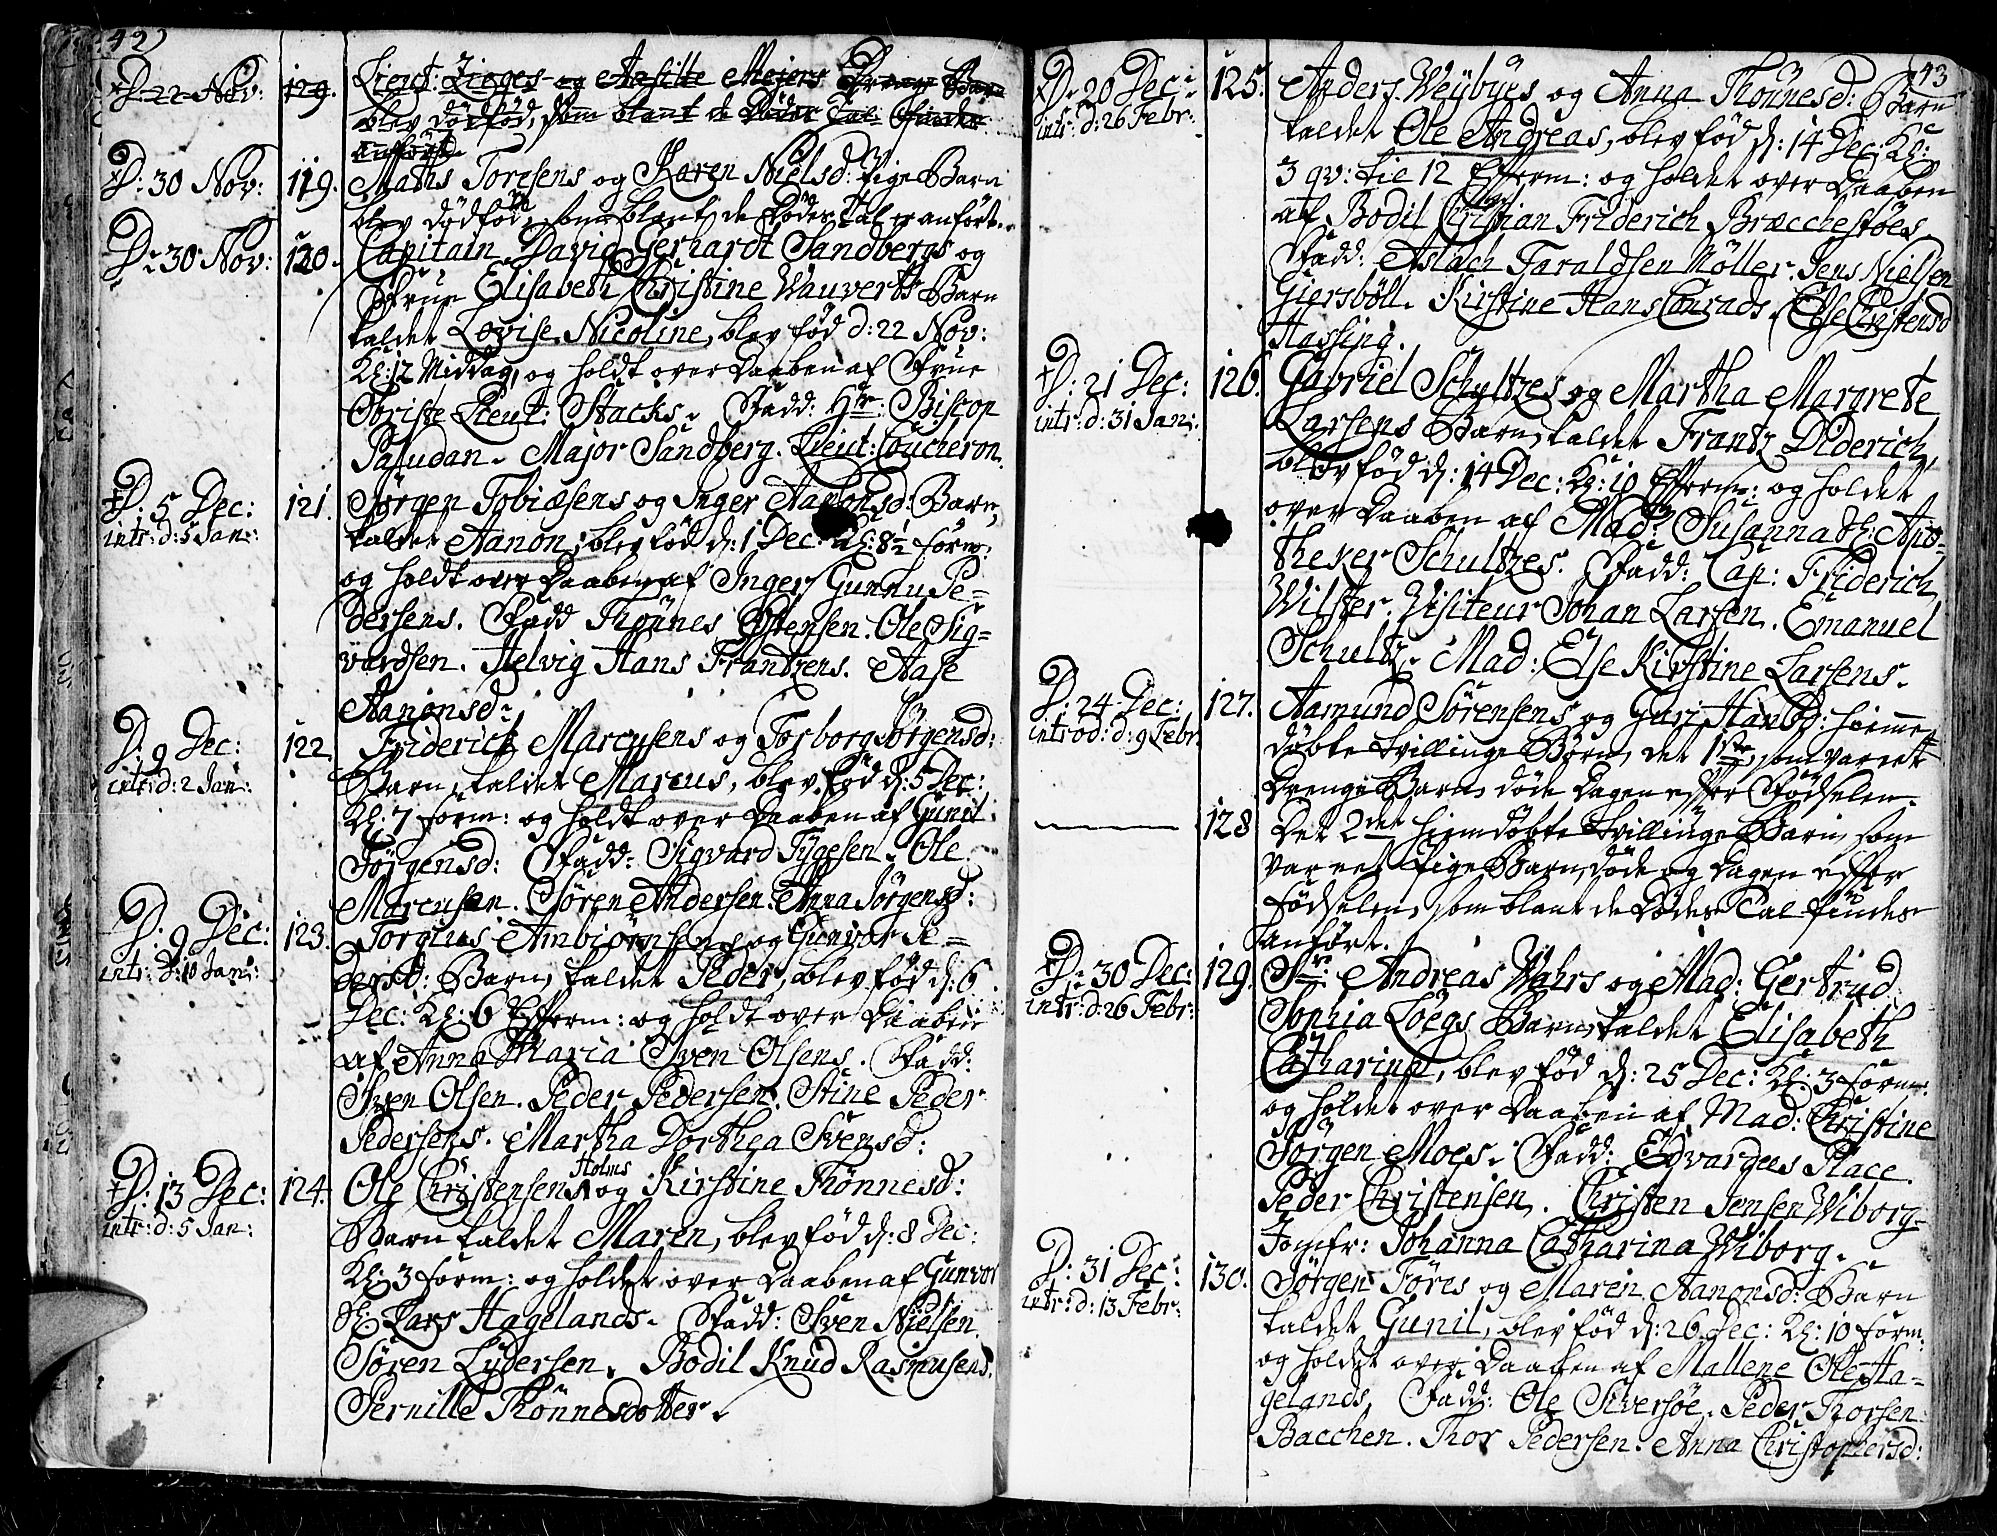 42)
D. 22 Nov: 129. Lieut: Zieges og Ansille Mejers Drenge Barn
blev dödföd, som blant de Dödes Tal findes
anfört.
D: 30 Nov: 119. Mathis Toresens og Karen Nielsd: Pige Barn
blev dödföd, som blant de Dödes Tal er anfört.
D. 30 Nov: 120. Capitain David Gerhardt Sandbergs og
Frue Elisabeth Christine Wauverts Barn
kaldet Lovise Nicoline, blev föd d: 22 Nov:
Kl: 12 Middag, og holdt over Daaben af Frue
Christe Lieut: Stacks. Fadd: Hr: Biscop
Paludan. Major Sandberg. Lieut: Coucheron.
D. 5 Dec: 121. Jörgen Tobiæsens og Inger Aanonsd: Barn
intr: d: 5 Jan:
kaldet Aanon, blev föd d: 1 Dec: Kl: 8½ form:
og holdt over Daaben af Inger Gunnu Pe=
dersens. Fadd Thönnes Ostensen. Ole Sig=
vardsen. Helvig Hans Frantzens. Aase
Aanonsd:
D: 9 Dec: 122. Friderich Marcusens og Torborg Jörgensd:
intr: d: 2 Jan:
Barn, kaldet Marcus, blev föd d: 5 Dec:
Kl: 7 form: og holdt over Daaben af Gunil
Jörgensd: Fadd: Sigvard Tygesen. Ole
Marcusen. Sören Andersen. Anna Jörgensd:
D: 9 Dec: 123. Torgius Ambiörnsens og Gunvor Pe=
intr: d: 10 Jan:
dersd: Barn, kaldet Peder, blev föd d: 6
Dec: Kl: 6 Efterm: og holdt over Daaben
af Anna Maria Sven Olsens. Fadd:
Sven Olsen. Peder Pedersen. Stine Peder
Pedersens. Martha Dorthea Svensd:
D: 13 Dec: 124. Ole Christensens Holms og Kirstine Thönnesd:
intr: d: 5 Jan:
Barn kaldet Maren, blev föd d: 8 Dec:
Kl: 3 form: og holdet over Daaben af Gunvor
Sl: Lars Hagelands. Fadd: Sven Nielsen.
Sören Lydersen. Bodil Knud Rasmusens.
Pernille Thönnesdotter.
43
D. 20 Dec: 125. Anders Weybyes og Anna Thönnesd: Barn
intr: d: 26 Febr:
kaldet Ole Andreas, blev föd d: 14 Dec: Kl:
3 qv: til 12 Efterm: og holdet over Daaben
af Bodil Christian Friderich Bræcchestöes
Fadd: Aslach Taraldsen Möller. Jens Nielsen
Giersböll. Kirstine Hans Conrads. Else Christensd
Hassing.
D: 21 Dec: 126. Gabriel Schultzes og Martha Margrete
intr: d: 31 Jan:
Larsens Barn, kaldet Frantz Diderich,
blev föd d: 14 Dec: Kl: 10 Efterm: og holdet
over Daaben af Mad: Susanna Sl: Apo=
theker Schultzes. Fadd: Cap: Friderich
Wilster. Visiteur Johan Larsen. Emanuel
Schultz. Mad: Else Kirstine Larsens.
D. 24 Dec: 127. Aamund Sörensens og Guri Hansd: hiemme
introd: d: 9 Febr.
döbte Tvillinge Börn, det 1ste, som var et
Drenge Barn, döde Dagen efter Födselen.
128 Det 2det hiemdöbte Tvillinge Barn, som
var et Pige Barn, döde og Dagen efter
Födselen, som blant de Dödes Tal findes
anfört.
D. 30 Dec: 129. Sr. Andreas Wahrs og Mad: Gertrud
intr: d: 26 Febr:
Sophia Löegs Barn, kaldet Elisabeth
Catharina, blev föd d: 25 Dec: Kl: 3 form:
og holdet over Daaben af Mad: Christine
Jörgen Moes. Fadd: Edvardees Place.
Peder Christensen. Christen Jensen Wiborg.
Jomfr: Johanna Catharina Wiborg.
D: 31 Dec: 130. Jörgen Föres og Maren Aanonsd: Barn
intr: d: 13 Febr:
kaldet Gunil, blev föd d: 26 Dec: Kl: 10 form:
og holdet over Daaben af Mallene Ole Ha=
gelands. Fadd: Ole Siversöe. Peder Thorsen
Bacchen. Thor Pedersen. Anna Christophersd: